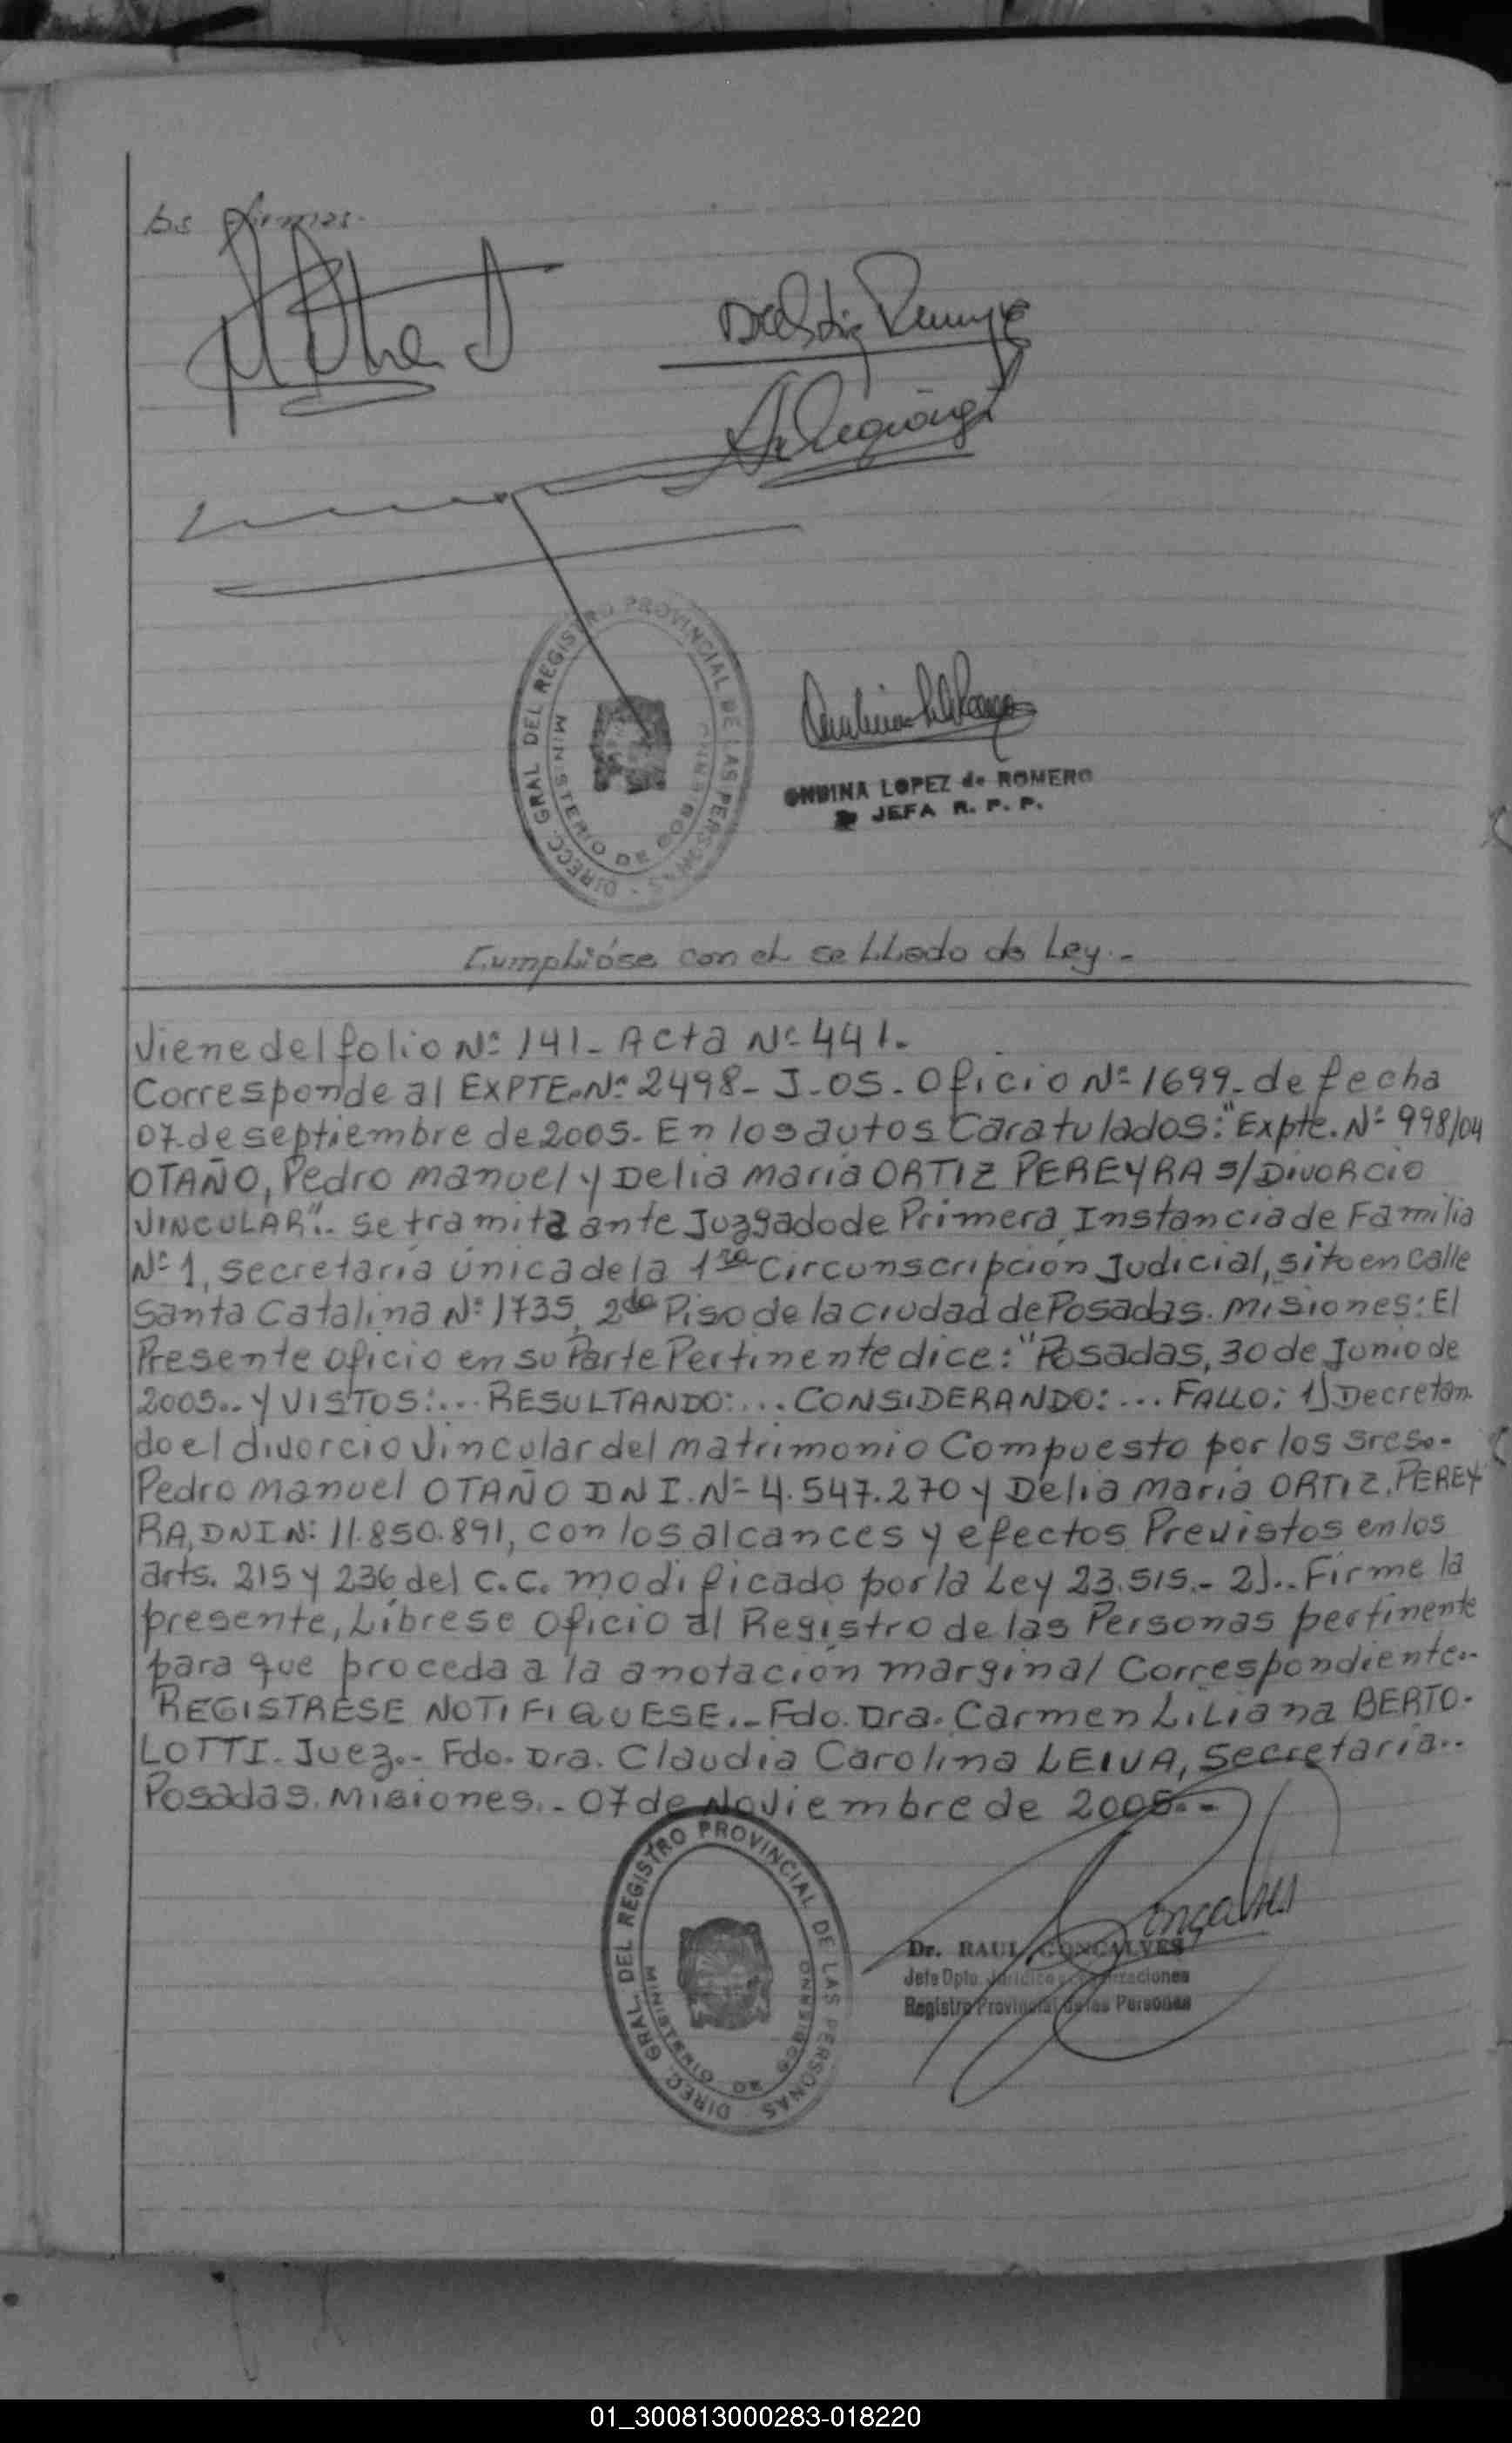 los firmas.
DIRECC. GRAL DEL REGISTRO PROVINCIAL DE LAS PERSONAS
MINISTERIO DE GOBIERNO
ONDINA LOPEZ de ROMERO
JEFA R. P. P.
Cumplióse con el sellado de Ley.-
Viene del folio Nº 141- Acta Nº 441.
Corresponde al EXPTE. Nº 2498- J-05- Oficio Nº 1699- de fecha
07 de septiembre de 2005- En los autos Caratulados: "Expte. Nº 998/04
OTAÑO, Pedro Manuel y Delia María ORTIZ PEREYRA S/DIVORCIO
VINCULAR".- se tramita ante Juzgado de Primera Instancia de Familia
Nº 1, secretaría única de la 1ra Circunscripción Judicial, sito en Calle
Santa Catalina Nº 1735, 2do Piso de la ciudad de Posadas. Misiones: El
Presente oficio en su Parte Pertinente dice: "Posadas, 30 de Junio de
2005.. Y VISTOS:... RESULTANDO:... CONSIDERANDO:... FALLO: 1) Decretan
do el divorcio Vincular del matrimonio Compuesto por los sres.-
Pedro Manuel OTAÑO DNI. Nº 4.547.270 y Delia María ORTIZ. PEREY
RA, DNI Nº 11.850.891, con los alcances y efectos Previstos en los
arts. 215 y 236 del C.C. modificado por la Ley 23.515.- 2).. Firme la
presente, Líbrese Oficio al Registro de las Personas pertinente
para que proceda a la anotación marginal Correspondiente.-
REGISTRESE NOTIFIQUESE.- Fdo. Dra. Carmen Liliana BERTO-
LOTTI. Juez.- Fdo. Dra. Claudia Carolina LEIVA, Secretaria..
Posadas. Misiones.- 07 de Noviembre de 2005.-
DIREC. GRAL. DEL REGISTRO PROVINCIAL DE LAS PERSONAS
MINISTERIO DE GOBIERNO
Goncalves
Dr. RAUL GONCALVES
Jefe Dpto. Jurídico
Registro Provincial de las Personas
01_300813000283-018220